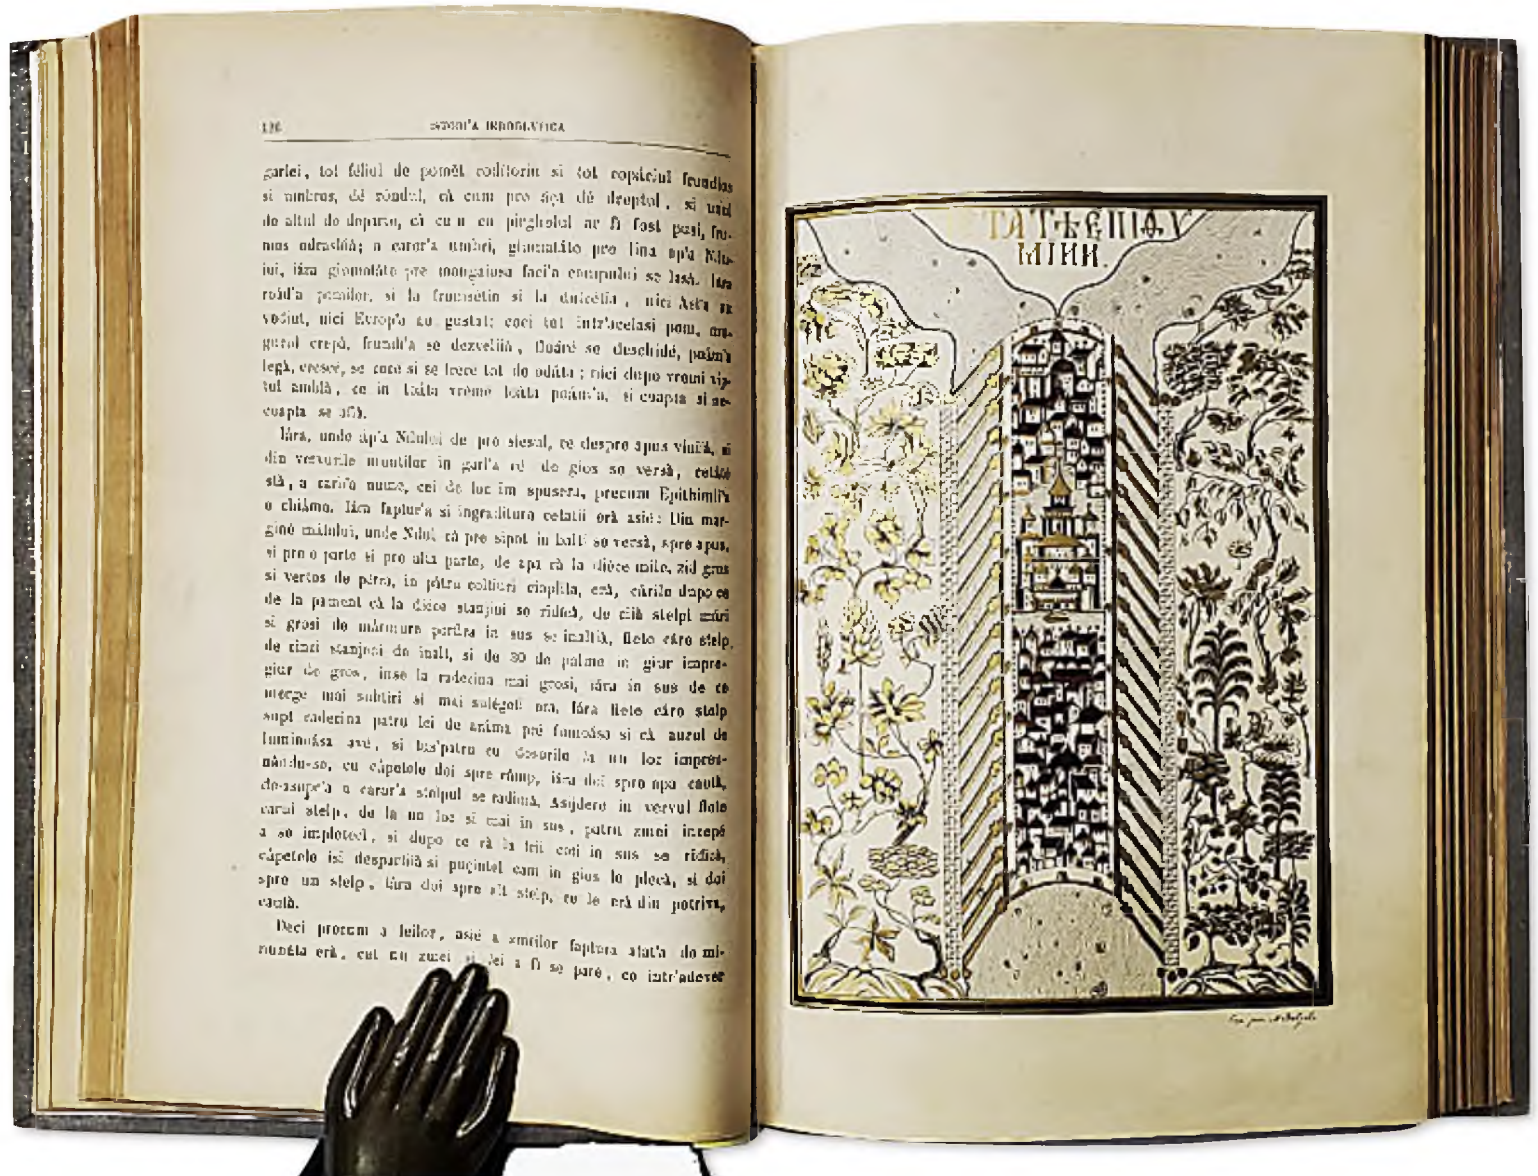 ISTORI'A IEROGLYFICA
garlei, tot féliul de pomět roditoriu si tot copaciul frundios
si umbros, dé róndul, că cum pre aţa dé dreptul, si unul
de altul de departe, că cum cu pirghelul ar fi fost pusi, fru-
mos odrasliá; a caror'a umbri, giumatáte pre lina ap'a Nilu-
lui, iára giumatáte pre mangaiósa faci'a campului se lasá. Iára
ród'a pomilor, si la frumsétia si la dulcétia, nici Asi'a au
vediut, nici Evrop'a au gustat; caci tot intr'acelasi pom, mu-
gurul crepá, frundi'a se dezveliiá, floáre se deschidé, poám'a
legá, cresce, se coce si se trece tot de odáta; nici dupo vremi
tul amblá, ce in toáta vréme toáta poám'a, si coapta si ne-
coapta se aflá.
Iára, unde áp'a Nilului de pre siesul, ce despre apus viniiá, si
din versurile muntilor in garl'a cé de gios se versá, cetáte
stá, a cariia nume, cei de loc im spusera, precum Epithimii'a
o chiámo. Iára faptur'a si ingraditura cetatii erá asiá: Din mar-
gine málului, unde Nilul că pre sipot in balt se versá, spre apus,
si pre o parte si pre alta parte, de apa că la diéce mile, zid gros
si vertos de pétra, in pátru coltiuri cioplita, erá, cárile dupo ce
de la pament că la diéce stanjini se ridicá, de ciiá stelpi mári
si grosi de mármure pordira in sus se inaltiá, fiete cáro stelp,
de cinci stanjeni de inalt, si de 30 de palme in giur impre-
giur de gros, inse la radecina mai grosi, iára in sus de ce
merge mai subtiri si mai sulégeti era. Iára fiete cáro stelp
supt radecina patru lei de aráma pré fumoása si că aurul de
luminoása avé, si tus'patru cu dosurile la un loc impreu-
nándu-se, cu cápetele doi spre cámp, iára doi spre apa cautá,
de-asupr'a a caror'a stelpul se radimá. Asijdere in vervul fiete
carui stelp, de la un loc si mai in sus, patru zmei incepé
a se impleteci, si dupo ce că la trii coti in sus se ridicá,
cápetele isi despartiiá si puçintel cam in gios le plecá, si doi
spre un stelp, iára doi spre alt stelp, ce le erá din potriva,
cautá.
Deci precum a leilor, asié a zmeilor faptura atat'a de mi-
nunáta erá, cat nu zmei si lei a fi se paré, ce intr'adever
ΤΑΤѢ ЄПІѲУ
МІИИ.